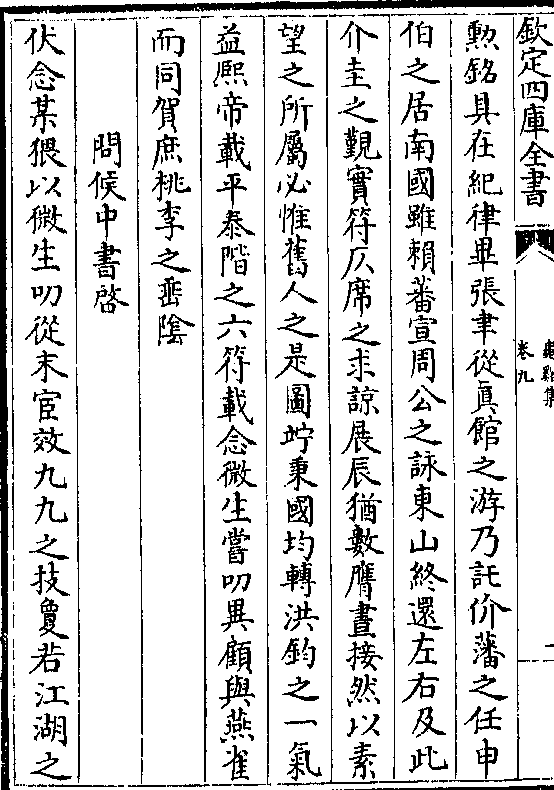 欽定四庫全書
龜谿集
卷九
勲銘具在紀律畢張聿從真館之游乃託价藩之任申
伯之居南國雖賴蕃宣周公之詠東山終還左右及此
介圭之覲實符仄席之求諒展辰猶數膺晝接然以素
望之所屬必惟舊人之是圖竚秉國均轉洪鈞之一氣
益熈帝載平泰階之六符載念微生嘗叨異顧與燕雀
而同賀庶桃李之垂隂
問候中書啓
伏念某猥以微生叨從末宦效九九之技敻若江湖之